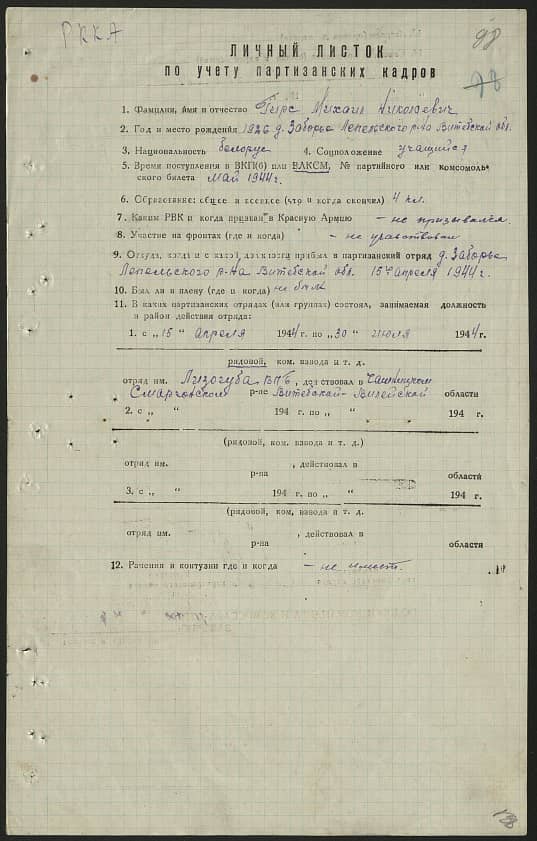 РККА
98
98
ЛИЧНЫЙ ЛИСТОК
по учету партизанских кадров
1. Фамилия, имя и отчество Гирс Михаил Николаевич
2. Год и место рождения 1926 д. Заборье Лепельского р-на Витебской обл.
3. Национальность белорус 4. Соцположение учащийся
5. Время поступления в ВКП(б) или ВЛКСМ, № партийного или комсомоль-
ского билета май 1944г.
6. Образование: общее и военное (что и когда окончил) 4 кл.
7. Каким РВК и когда призван в Красную Армию – не призывался.
8. Участие на фронтах (где и когда) – не участвовал
9. Откуда, когда и с какой должности прибыл в партизанский отряд д. Заборье
Лепельского р-на Витебской обл. 15го апреля 1944г.
10. Был ли в плену (где и когда) не был
11. В каких партизанских отрядах (или группах) состоял, занимаемая должность
и район действия отряда:
1. с „15“ апреля 1944 г. по „30“ июля 1944 г.
рядовой, ком. взвода и т. д.
отряд им. Лизогуба, действовал в Чашникском
Сморгонском р-не Витебской-Вилейской области
2. с „ “ 194 г. по „ “ 194 г.
(рядовой, ком. взвода и т. д.)
отряд им. , действовал в
р-на области
3. с „ “ 194 г. по „ “ 194 г.
(рядовой, ком. взвода и т. д.
отряд им. , действовал в
р-на области
12. Ранения и контузии где и когда – не имеет.